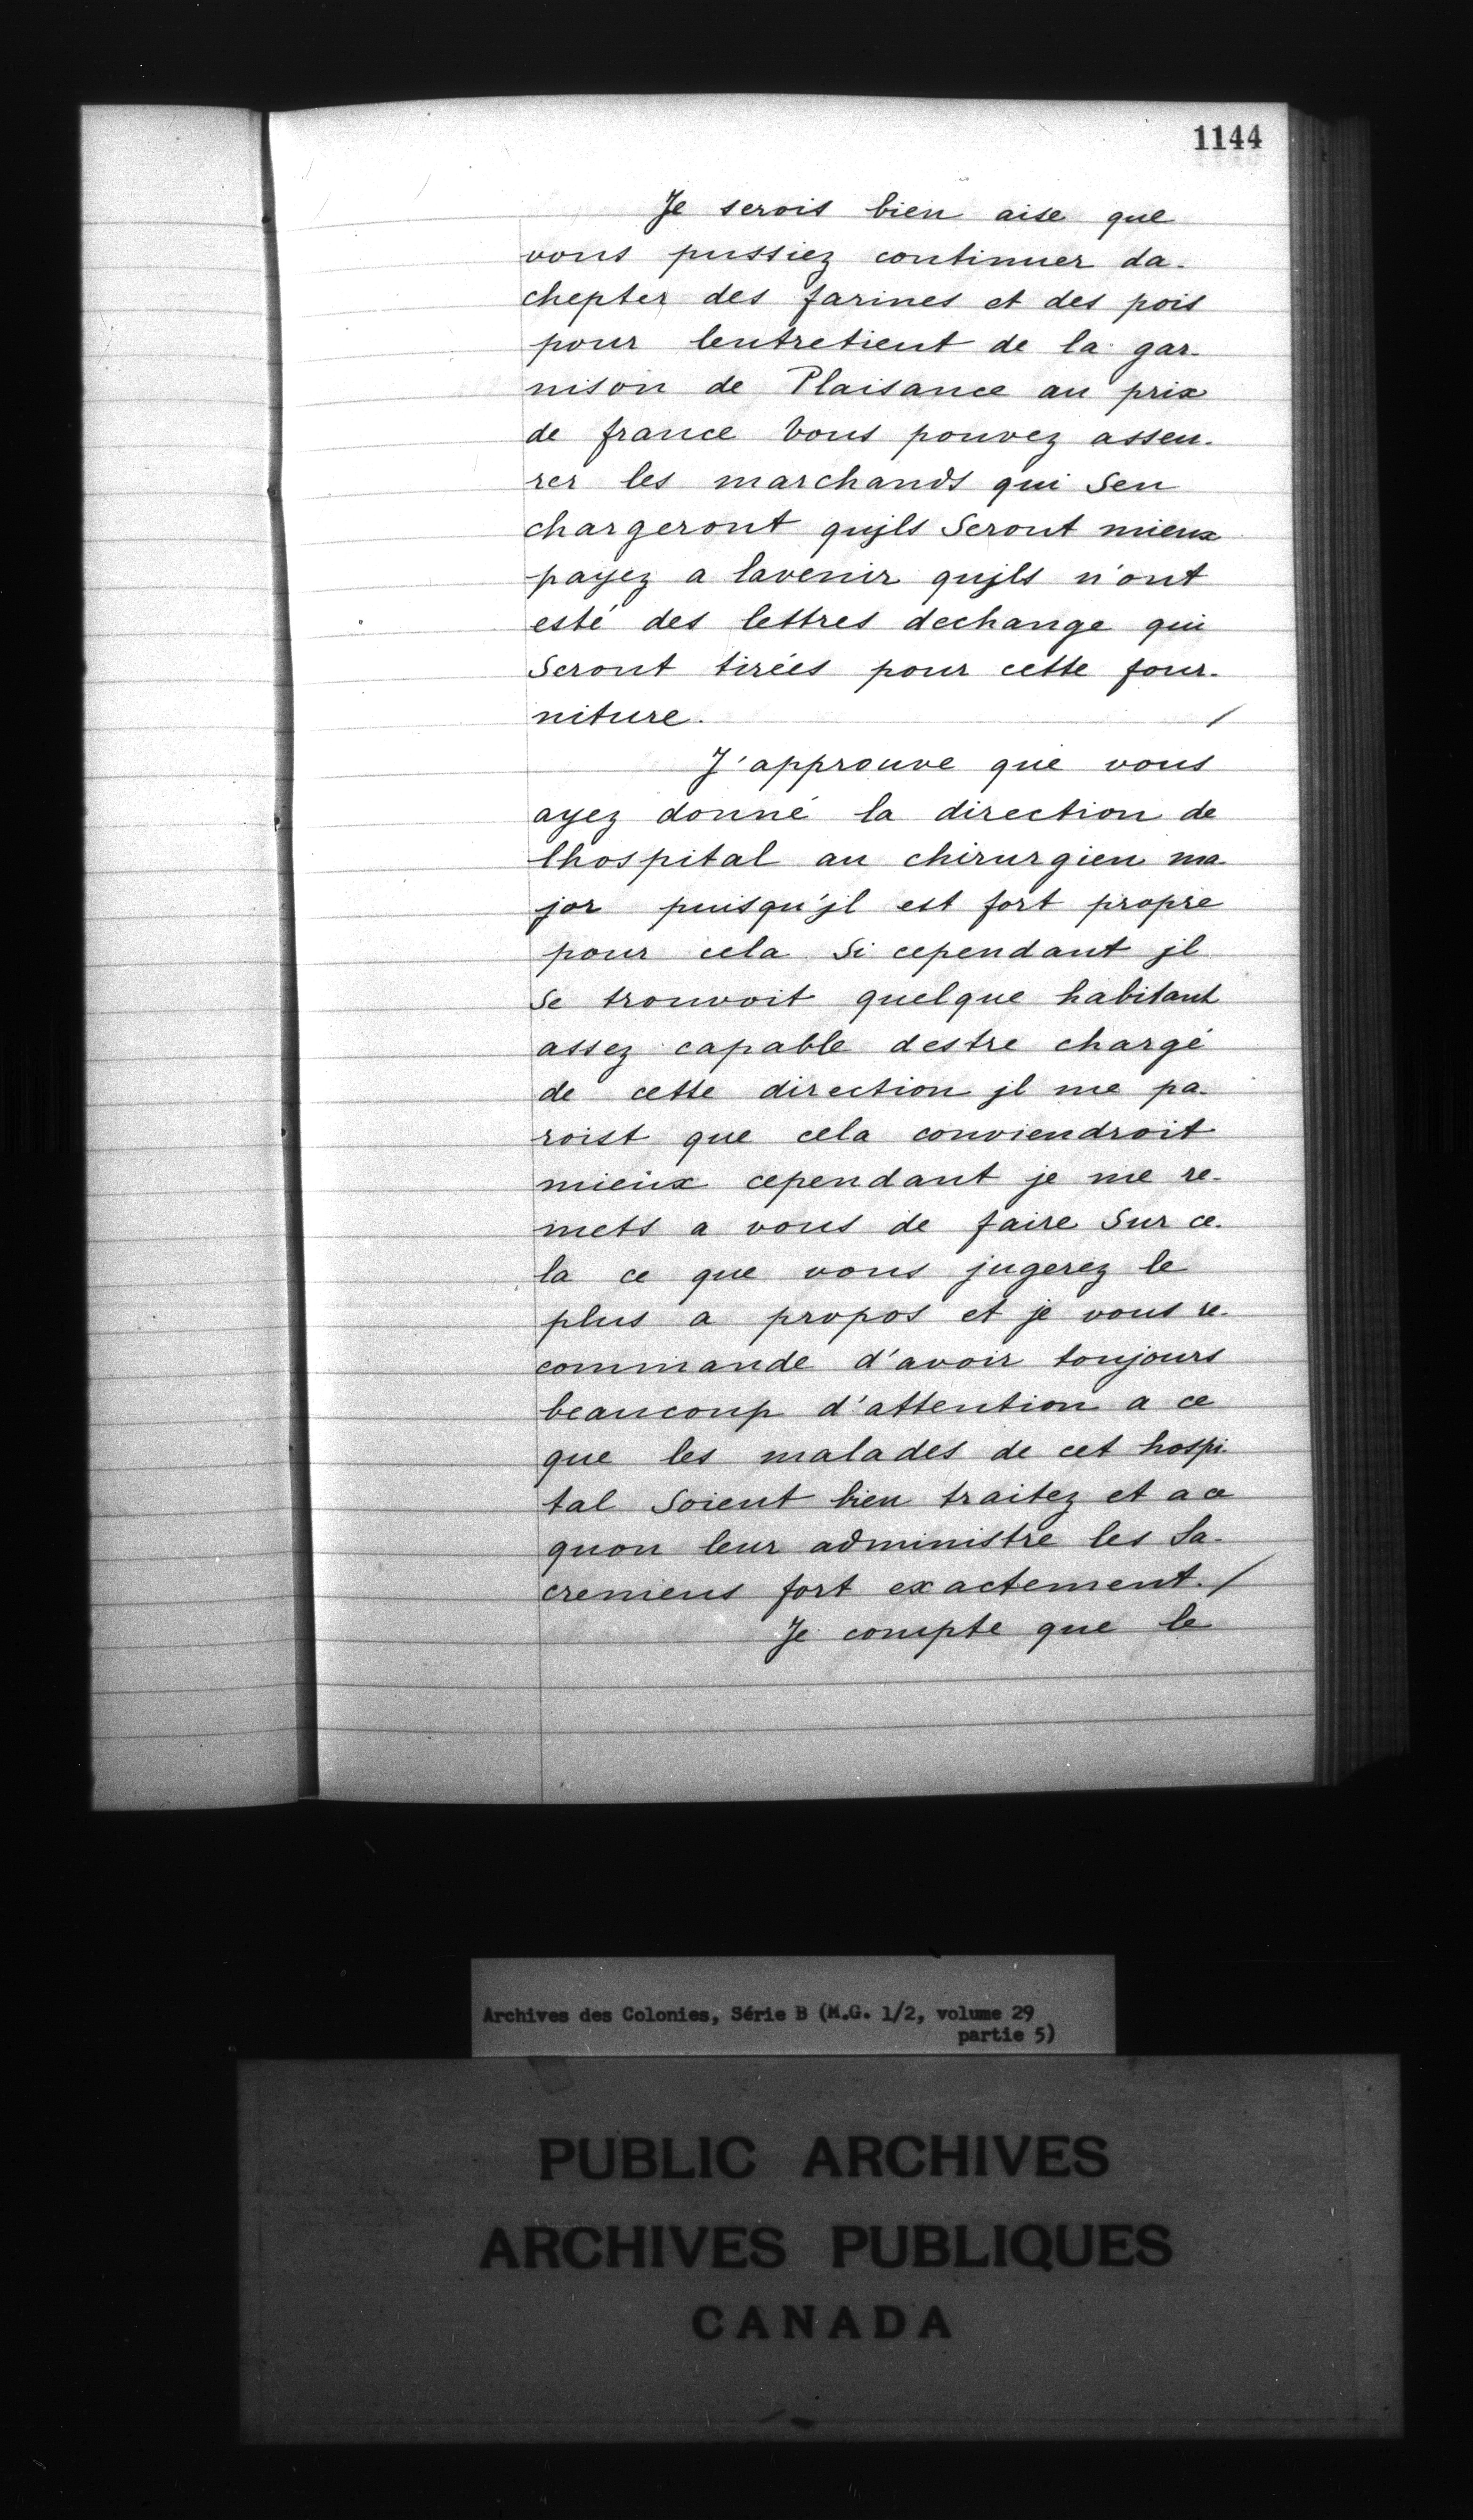 1144
Je serois bien aise que
vous pussiez continuer da-
chepter des farines et des pois
pour lentretient de la gar-
nison de Plaisance au prix
de france Vous pouvez asseu-
rer les marchands qui Sen
chargeront qujls Seront mieux
payez a lavenir qujls n'ont
esté des lettres dechange qui
Seront tirées pour cette four-
niture. /
J'approuve que vous
ayez donné la direction de
lhospital au chirurgien ma-
jor puisqu'jl est fort propre
pour cela Si cependant jl
Se trouvoit quelque habitant
assez capable destre chargé
de cette direction jl me pa-
roist que cela conviendroit
mieux cependant je me re-
mets a vous de faire Sur ce-
la ce que vous jugerez le
plus a propos et je vous re-
commande d'avoir toujours
beaucoup d'attention a ce
que les malades de cet hospi-
tal Soient bien traitez et a ce
quon leur administre les Sa-
cremens fort exactement. /
Je compte que le
Archives des Colonies, Série B (M.G. 1/2, volume 29
partie 5)
PUBLIC ARCHIVES
ARCHIVES PUBLIQUES
CANADA